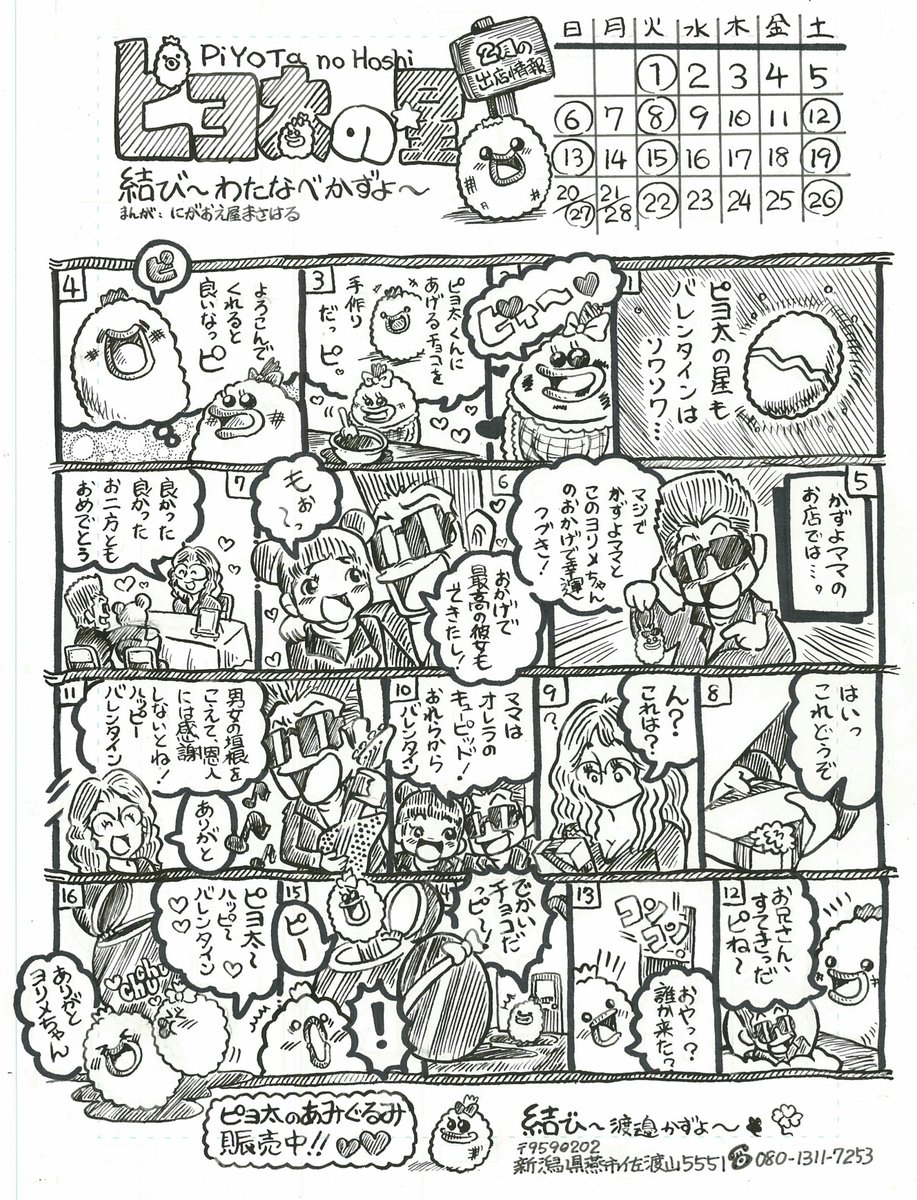 PiYOTa no Hoshi
ピヨ太の星
結び〜わたなべかずよ〜
まんが：にがおえ屋まさはる
2月の
出店情報
日 月 火 水 木 金 土
1 2 3 4 5
6 7 8 9 10 11 12
13 14 15 16 17 18 19
20/27 21/28 22 23 24 25 26
1
ピヨ太の星も
バレンタインは
ソワソワ…
ピヨ〜
3
ピヨ太くんに
あげるチョコを
手作り
だっピ
4
ピ
よろこんで
くれると
良いなっピ
5
かずよママの
お店では…。
マジで
かずよママと
このヨリメちゃん
のおかげで幸運
つづき!
6
おかげで
最高の彼女も
できたし!
もぉ〜っ
7
良かった
良かった
お二方とも
おめでとう
8
はいっ
これどうぞ
9
ん?
これは?
10
ママは
オレラの
キューピッド!
おれらから
バレンタイン
11
男女の垣根を
こえて、恩人
には感謝
しないとね!
ハッピー
バレンタイン
ありがと
12
お兄さん、
すてきっだ
ピね〜
13
コンコン
おやっ?
誰か来た?
でかいっ
チョコだ
っピ〜!
!
15
ピー
16
ピヨ太〜
ハッピ〜
バレンタイン
chu
ありがと
ヨリメちゃん
ピヨ太のあみぐるみ
販売中!!
結び〜渡邉かずよ〜
〒9590202
新潟県燕市佐渡山5551 ☎080-1311-7253